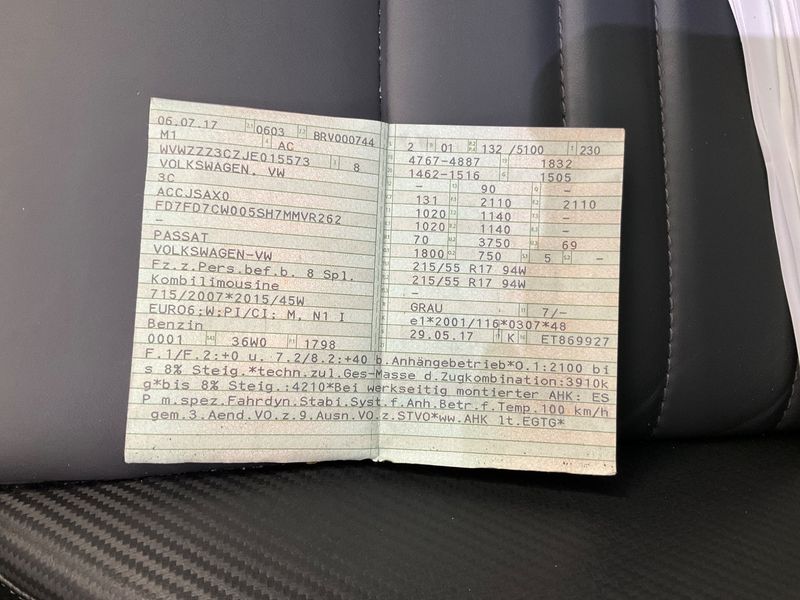 06.07.17 0603 BRV000744
M1 AC
WVWZZZ3CZJE015573 8
VOLKSWAGEN. VW
3C
ACCJSAX0
FD7FD7CW005SH7MMVR262
-
PASSAT
VOLKSWAGEN-VW
Fz.z.Pers.bef.b. 8 Spl.
Kombilimousine
715/2007*2015/45W
EURO6;W;PI/CI; M, N1 I
Benzin
0001 36W0 1798
2 01 132 /5100 230
4767-4887 1832
1462-1516 1505
- 90 -
131 2110 2110
1020 1140 -
1020 1140 -
70 3750 69
1800 750 5 -
215/55 R17 94W
215/55 R17 94W
-
GRAU 7/-
e1*2001/116*0307*48
29.05.17 K ET869927
F.1/F.2:+0 u. 7.2/8.2:+40 b.Anhängebetrieb*O.1:2100 bi
s 8% Steig.*techn.zul.Ges-Masse d.Zugkombination:3910k
g*bis 8% Steig.:4210*Bei werkseitig montierter AHK: ES
P m.spez.Fahrdyn.Stabi.Syst.f.Anh.Betr.f.Temp.100 km/h
gem.3.Aend.VO.z.9.Ausn.VO.z.STVO*ww.AHK lt.EGTG*